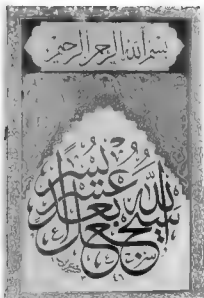 بسم الله الرحمن الرحيم
سيجعل الله بعد عسر يسرا